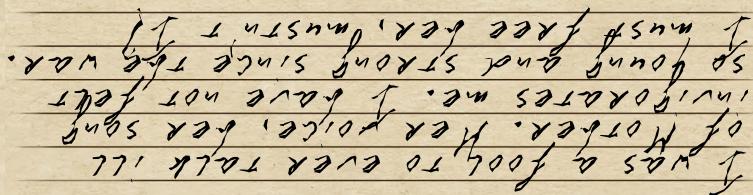 I was a fool to ever talk ill
of Mother. Her voice, her song
invigorates me. I have not felt
so young and strong since the war.
I must free her, mustn't I